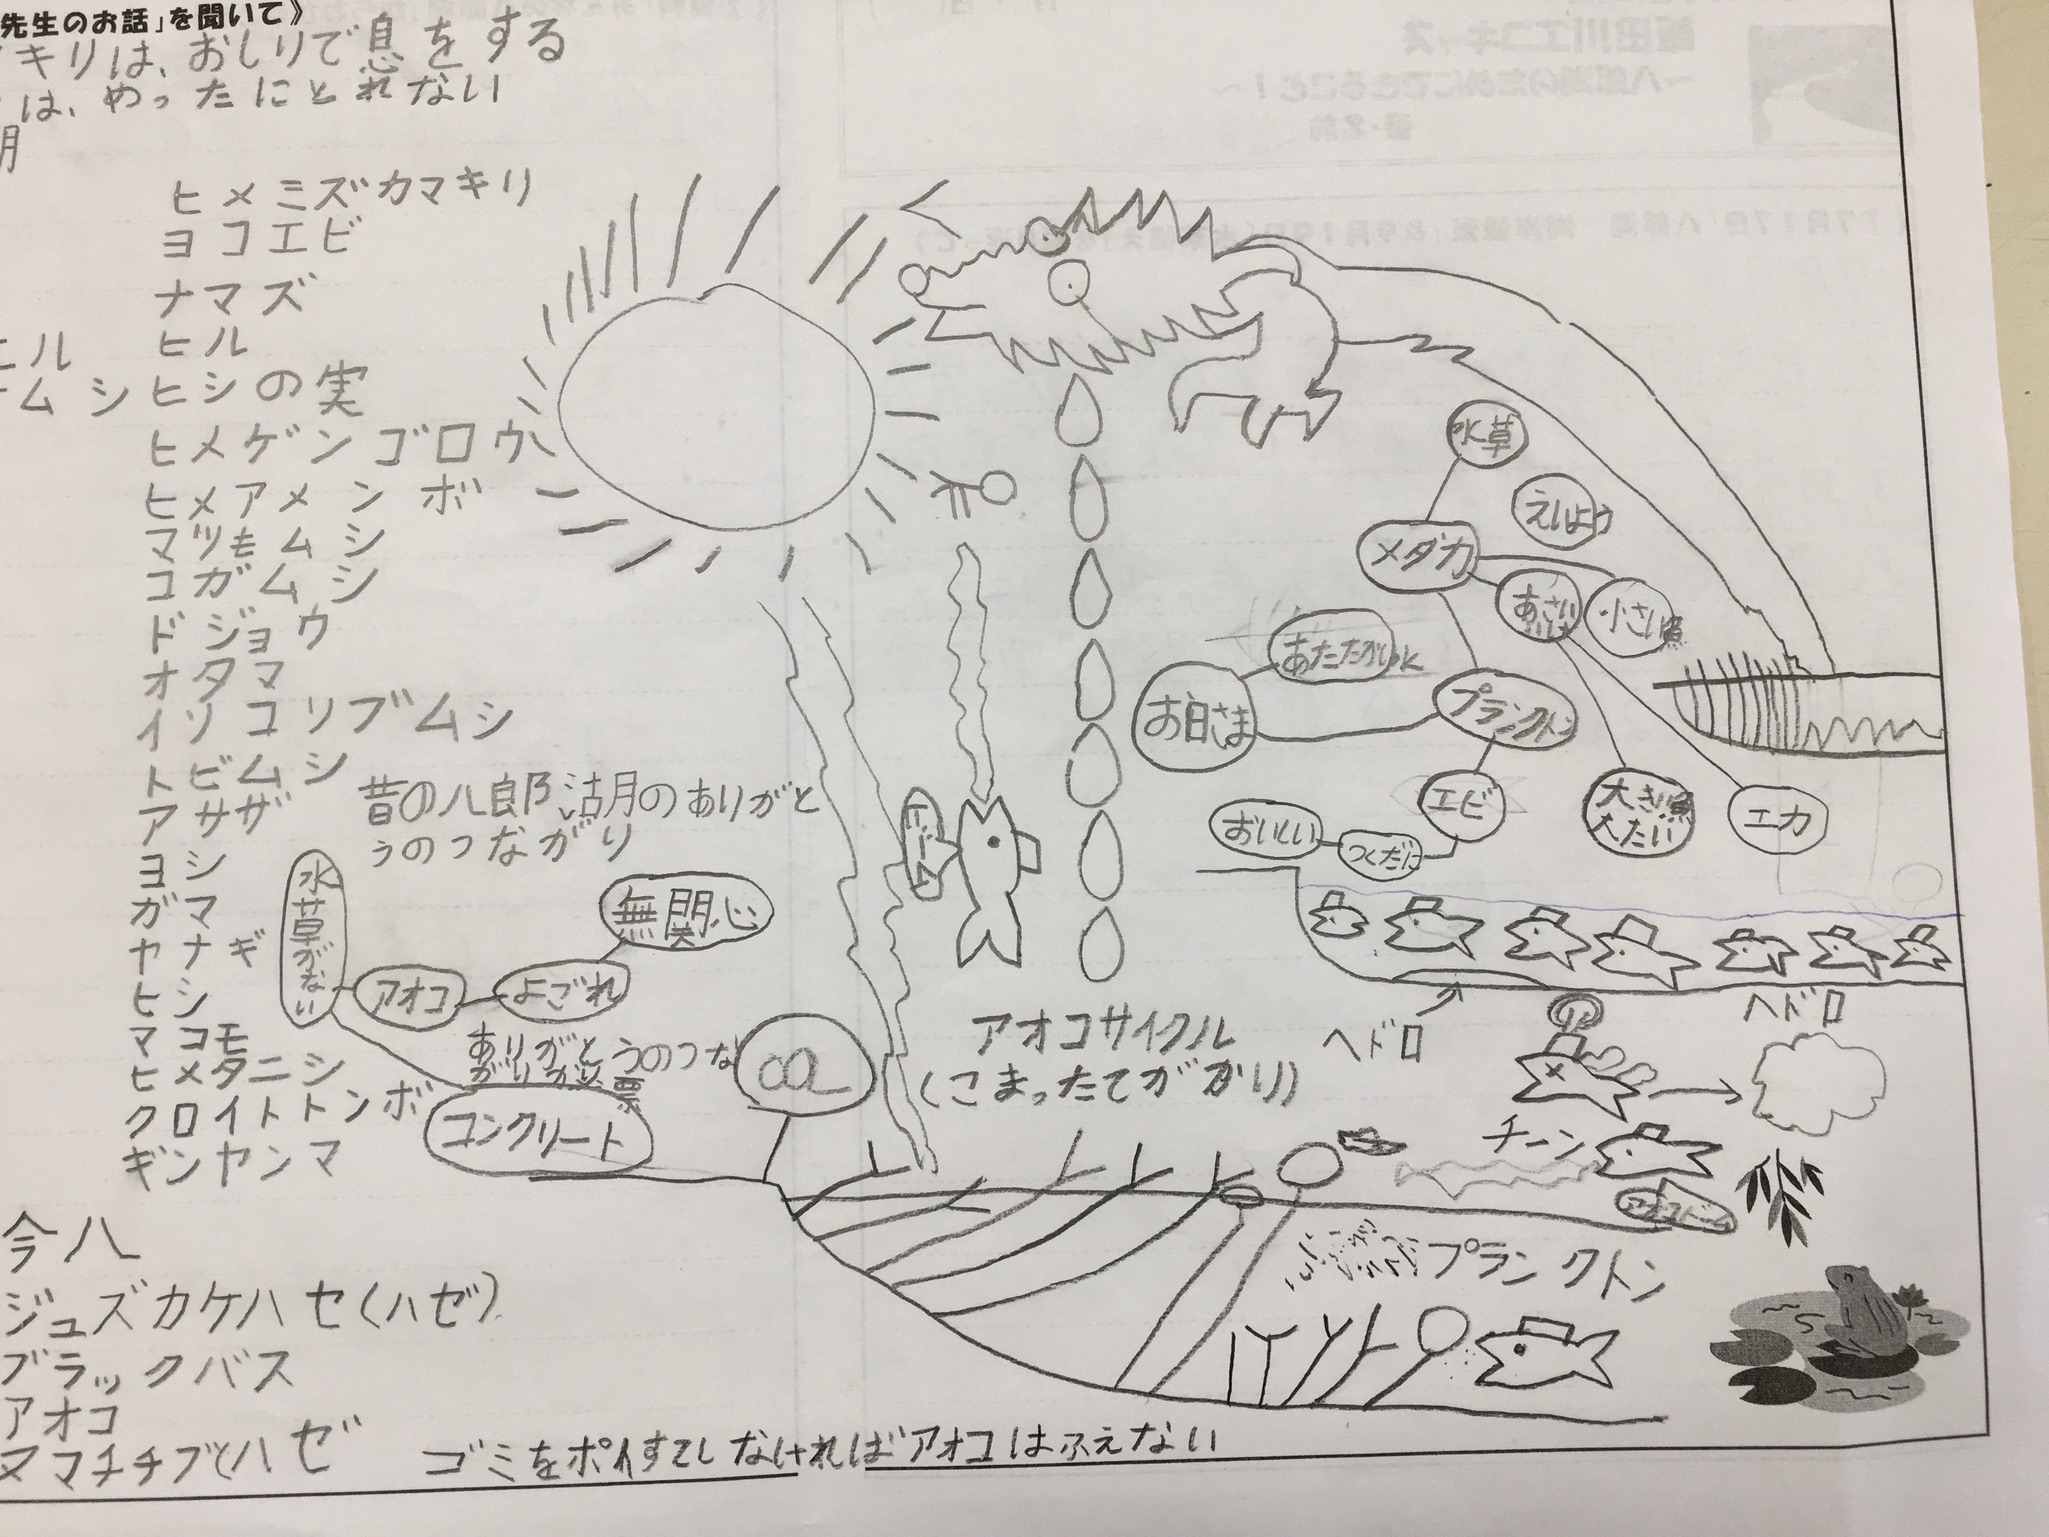 先生のお話」を聞いて》
キリは、おしりで息をする
は、めったにとれない
ヒメミズカマキリ
ヨコエビ
ナマズ
ヒル
ムシ ヒシの実
ヒメゲンゴロウ
ヒメアメンボ
マツモムシ
コガムシ
ドジョウ
オタマ
イソコリブムシ
トビムシ
アサザ
ヨシ
ガマ
ヤナギ
ヒシ
マコモ
ヒメタニシ
クロイトトンボ
ギンヤンマ
昔の八郎湖のありがと
うのつながり
水草がない
アオコ
よごれ
無関心
ありがとうのつな
がり
コンクリート
今八
ジュズカケハセ(ハゼ)
ブラックバス
アオコ
ヌマチチブとハゼ
水草
えいよう
メダカ
あさい
小さい魚
あたたかい水
お日さま
プランクトン
エビ
大きい魚
エカ
おいしい
つくだに
アオコサイクル
(こまったてがかり)
ヘドロ
ヘドロ
チーン
プランクトン
ゴミをポイすてしなければアオコはふえない